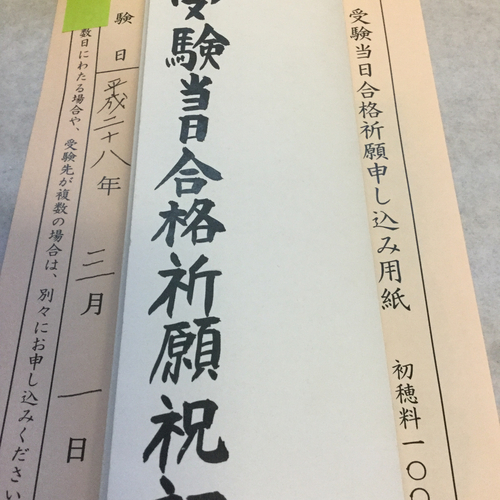 受験当日合格祈願申し込み用紙
初穂料一〇〇
受験当日合格祈願祝詞
験日 平成二十八年 三月 一日
数日にわたる場合や、受験先が複数の場合は、別々にお申し込みください